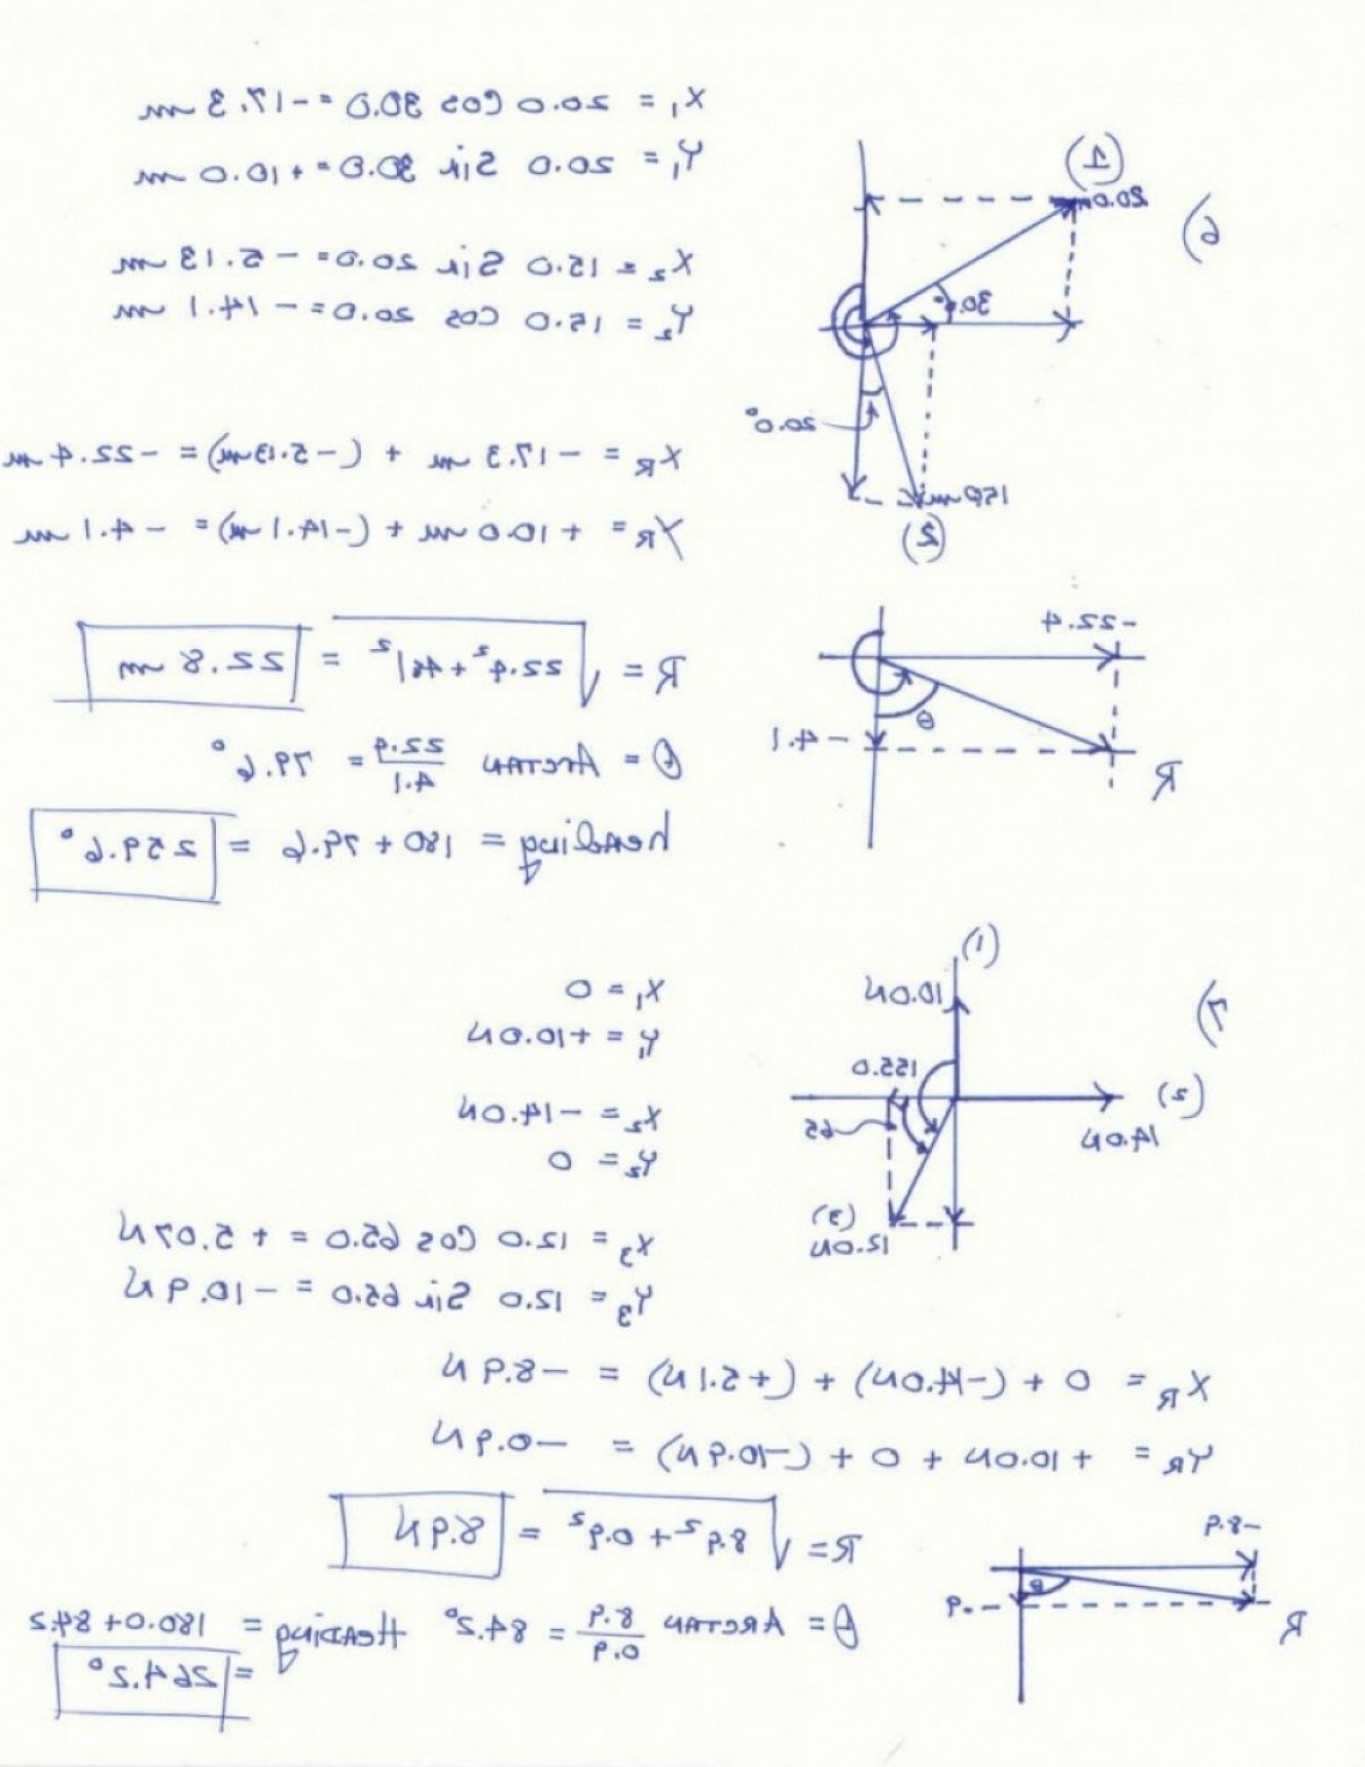 6)
(1)
20.0m
30.0°
20.0°
150m
(2)
X₁ = 20.0 Cos 30.0 = -17.3 m
Y₁ = 20.0 Sin 30.0 = +10.0 m
X₂ = 15.0 Sin 20.0 = -5.13 m
Y₂ = 15.0 Cos 20.0 = -14.1 m
X_R = -17.3 m + (-5.13m) = -22.4 m
Y_R = +10.0 m + (-14.1 m) = -4.1 m
-22.4
θ
-4.1
R
R = √22.4² + 4.1² = 22.8 m
θ = Arctan 22.4/4.1 = 79.6°
heading = 180 + 79.6 = 259.6°
7)
(1)
10.0N
155.0
(2)
14.0N
65
(3)
12.0N
X₁ = 0
Y₁ = +10.0N
X₂ = -14.0N
Y₂ = 0
X₃ = 12.0 Cos 65.0 = +5.07N
Y₃ = 12.0 Sin 65.0 = -10.9N
X_R = 0 + (-14.0N) + (+5.1N) = -8.9N
Y_R = +10.0N + 0 + (-10.9N) = -0.9N
-8.9
θ
-.9
R
R = √8.9² + 0.9² = 8.9N
θ = Arctan 8.9/0.9 = 84.2° Heading = 180.0+84.2
= 264.2°